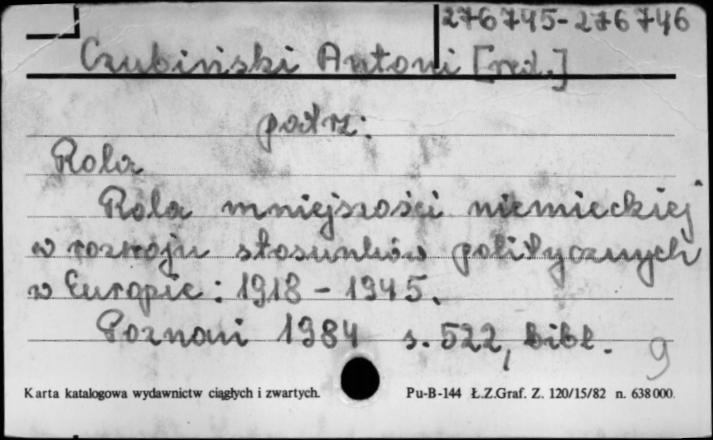 276745-276746
Czubiński Antoni [red.]
patrz:
Rola
Rola mniejszości niemieckiej
w rozwoju stosunków politycznych
w Europie: 1918 - 1945.
Poznań 1984 s. 522, bibl.
9
Karta katalogowa wydawnictw ciągłych i zwartych. Pu-B-144 Ł.Z.Graf. Z. 120/15/82 n. 638000.